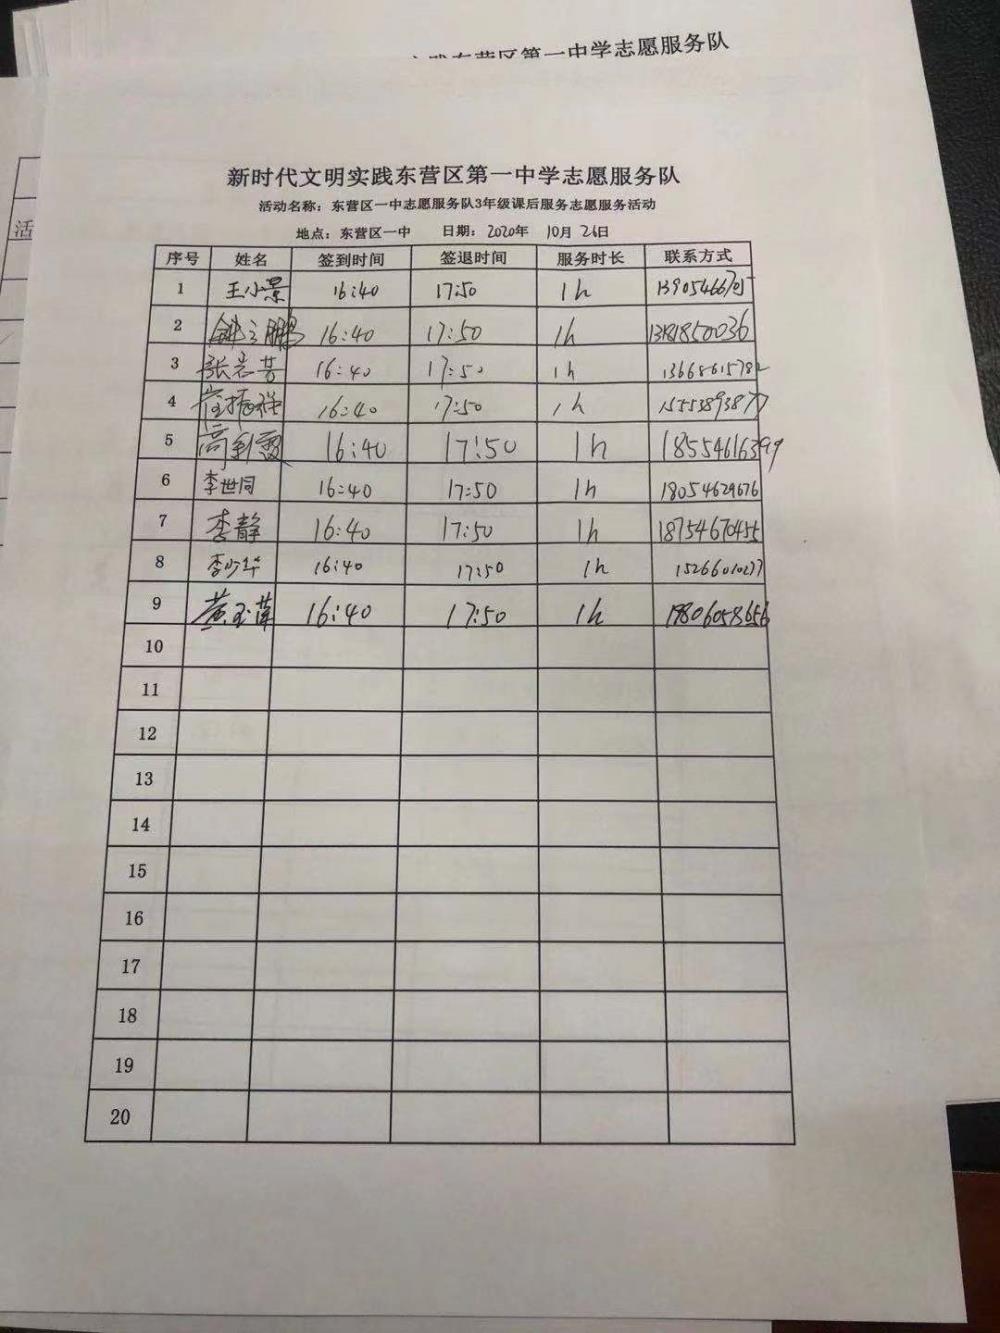 东营区第一中学志愿服务队
新时代文明实践东营区第一中学志愿服务队
活动名称：东营区一中志愿服务队3年级课后服务志愿服务活动
地点：东营区一中 日期：2020年 10月 26日
活
序号 姓名 签到时间 签退时间 服务时长 联系方式
1 王小景 16:40 17:50 1h
2 16:40 17:50 1h
3 16:40 17:50 1h 13668615782
4 16:40 17:50 1h
5 16:40 17:50 1h 18554616399
6 李世同 16:40 17:50 1h 18054629676
7 李静 16:40 17:50 1h 18754670455
8 李少华 16:40 17:50 1h 15266010277
9 黄玉萍 16:40 17:50 1h
10
11
12
13
14
15
16
17
18
19
20